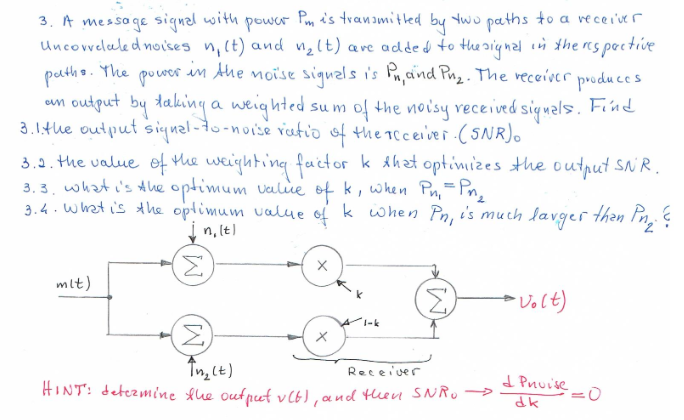 3. A message signal with power Pm is transmitted by two paths to a receiver
Uncorrelated noises n₁(t) and n₂(t) are added to the signal in the respective
paths. The power in the noise signals is Pn₁ and Pn₂. The receiver produces
an output by taking a weighted sum of the noisy received signals. Find
3.1. the output signal-to-noise ratio of the receiver. (SNR)₀
3.2. the value of the weighting factor k that optimizes the output SNR.
3.3. what is the optimum value of k, when Pn₁ = Pn₂
3.4. What is the optimum value of k when Pn₁ is much larger than Pn₂.?
n₁(t)
Σ
×
k
m(t)
Σ
v₀(t)
1-k
Σ
×
n₂(t)
Receiver
HINT: determine the output v(t), and then SNR₀ → d Pnoise / dk = 0